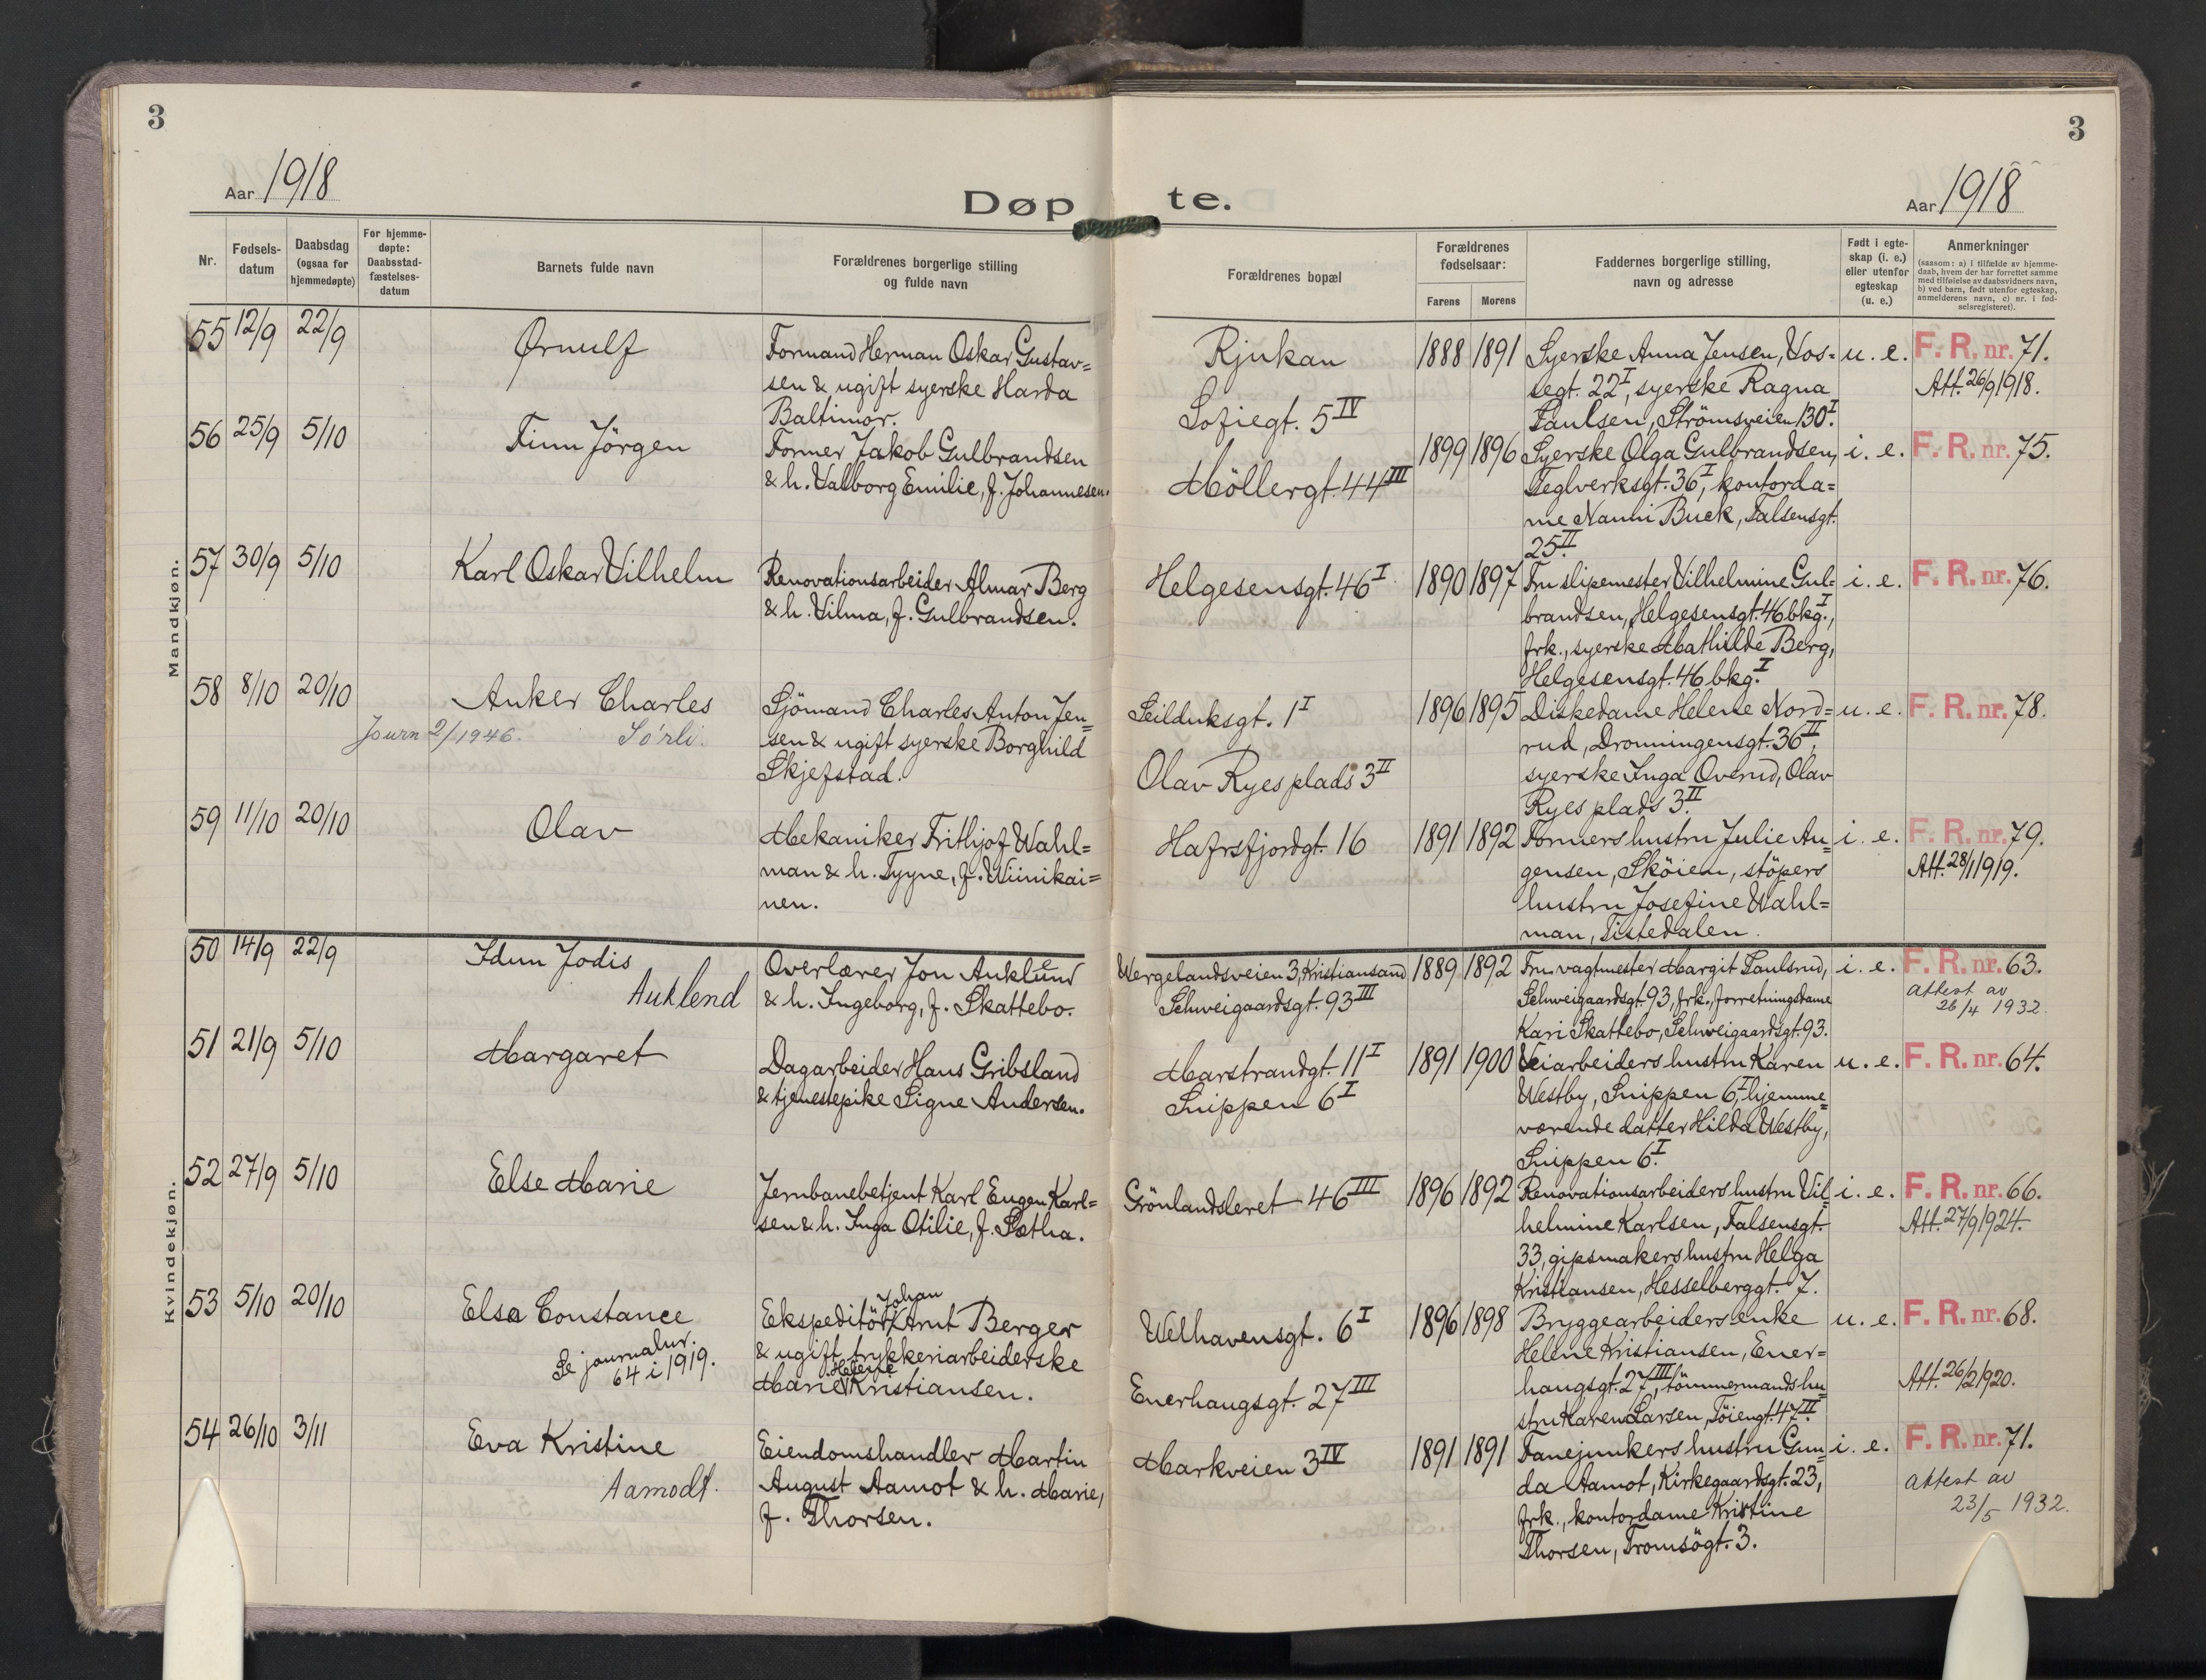 3
3
Aar 1918
Døpte.
Aar 1918
Nr.
Fødsels-
datum
Daabsdag
(ogsaa for
hjemmedøpte)
For hjemme-
døpte:
Daabsstad-
fæstelses-
datum
Barnets fulde navn
Forældrenes borgerlige stilling
og fulde navn
Forældrenes bopæl
Forældrenes
fødselsaar:
Farens
Morens
Faddernes borgerlige stilling,
navn og adresse
Født i egte-
skap (i. e.)
eller utenfor
egteskap
(u. e.)
Anmerkninger
(saasom: a) i tilfælde av hjemme-
daab, hvem der har forrettet samme
med tilføielse av daabsvidners navn,
b) ved barn, født utenfor egteskap,
anmelderens navn, c) nr. i fød-
selsregisteret).
Mandkjøn.
55 12/9 22/9
Ørnulf
Formand Herman Oskar Gustav=
sen & ugift syerske Harda
Baltimor.
Rjukan
Sofiegt. 5 IV
1888 1891
Syerske Anna Jensen, Vos=
segt. 22 I, syerske Ragna
Paulsen, Strömsveien 130 I.
u. e.
F. R. nr. 71.
Att. 26/9 1918.
56 25/9 5/10
Finn Jörgen
Former Jakob Gulbrandsen
& h. Valborg Emilie, f. Johannesen.
Möllergt. 44 III
1899 1896
Syerske Olga Gulbrandsen,
Teglverksgt. 36 I, kontorda=
me Nanni Buck, Falsensgt.
25 II.
i. e.
F. R. nr. 75.
57 30/9 5/10
Karl Oskar Vilhelm
Renovationsarbeider Almar Berg
& h. Vilma, f. Gulbrandsen.
Helgesensgt. 46 I
1890 1897
Fru slipemester Vilhelmine Gul=
brandsen, Helgesensgt. 46 bkg. I,
frk., syerske Mathilde Berg,
Helgesensgt. 46 bkg. I
i. e.
F. R. nr. 76.
58 8/10 20/10
Anker Charles
Journ 2/1946. Sörli.
Sjömand Charles Anton Jen=
sen & ugift syerske Borghild
Skjefstad.
Seilduksgt. 1 I
Olav Ryes plads 3 II
1896 1895
Diskedame Helene Nord=
rud, Dronningensgt. 36 II,
syerske Inga Overud, Olav
Ryes plads 3 II.
u. e.
F. R. nr. 78.
59 11/10 20/10
Olav
Mekaniker Frithjof Wahl=
man & h. Tyyne, f. Wiinikai=
nen.
Hafrsfjordgt. 16
1891 1892
Formers hustru Julie Au=
gensen, Sköien, stöpers
hustru Josefine Wahl=
man, Tistedalen.
i. e.
F. R. nr. 79.
Att. 28/1 1919.
Kvindekjøn.
50 14/9 22/9
Idun Jodis
Auklend
Overlærer Jon Auklend
& h. Ingeborg, f. Skattebo.
Wergelandsveien 3, Kristiansand
Schweigaardsgt. 93 III
1889 1892
Fru vagtmester Margit Paulsrud,
Schweigaardsgt. 93, frk., forretningsdame
Kari Skattebo, Schweigaardsgt. 93.
i. e.
F. R. nr. 63.
Attest av
26/4 1932.
51 21/9 5/10
Margaret
Dagarbeider Hans Gribsland
& tjenestepike Signe Andersen.
Marstrandgt. 11 I
Snippen 6 I
1891 1900
Veiarbeiders hustru Karen
Westby, Snippen 6 I, hjemme=
værende datter Hilda Westby,
Snippen 6 I.
u. e.
F. R. nr. 64.
52 27/9 5/10
Else Marie
Jernbanebetjent Karl Eugen Karl=
sen & h. Inga Otilie, f. Sætha.
Grönlandsleret 46 III
1896 1892
Renovationsarbeiders hustru Vil=
helmine Karlsen, Falsensgt.
33, gipsmakers hustru Helga
Kristiansen, Hesselberggt. 7.
i. e.
F. R. nr. 66.
Att. 27/9 1924.
53 5/10 20/10
Elsa Constance
Se journalnr.
64 i 1919.
Johan
Ekspeditör Arnt Berger
& ugift trykkeriarbeiderske
Helene
Marie Kristiansen.
Welhavensgt. 6 I
Enerhaugsgt. 27 III
1896 1898
Bryggearbeiders enke
Helene Kristiansen, Ener=
haugsgt. 27 III, tömmermands hu=
stru Karen Larsen, Töiengt. 47 III.
u. e.
F. R. nr. 68.
Att. 26/2 1920.
54 26/10 3/11
Eva Kristine
Aamodt.
Eiendomshandler Martin
August Aamot & h. Marie,
f. Thorsen.
Markveien 3 IV
1891 1891
Fanejunkers hustru Gun=
da Aamot, Kirkegaardsgt. 23,
frk., kontordame Kristine
Thorsen, Tromsögt. 3.
i. e.
F. R. nr. 71.
Attest av
23/5 1932.